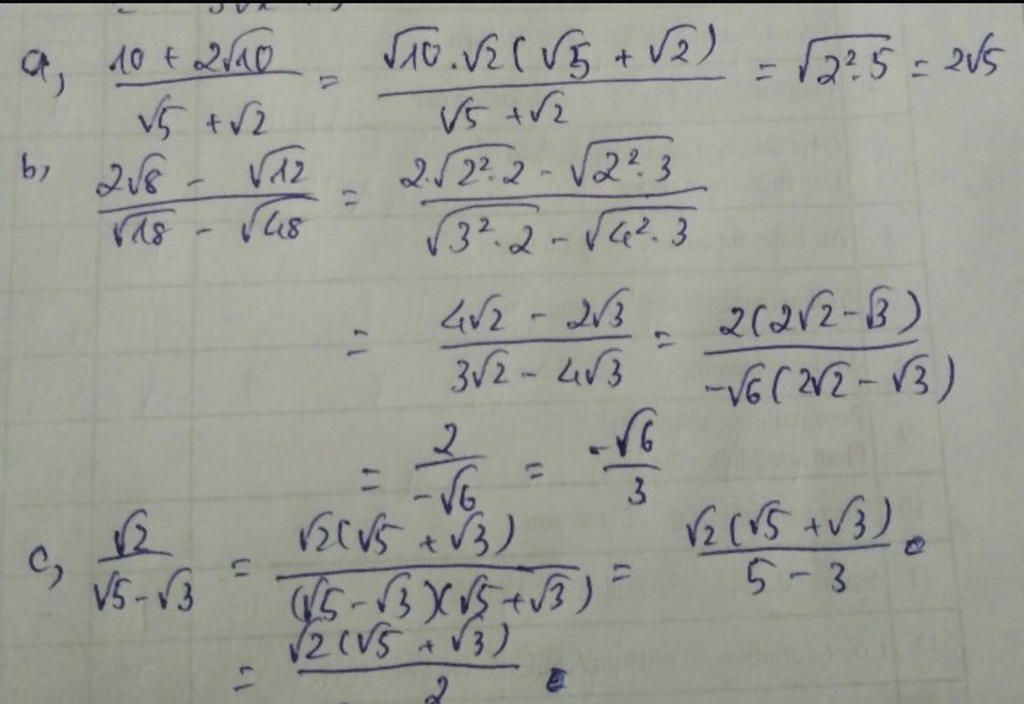 a, (10 + 2√10)/(√5 + √2) = (√10.√2(√5 + √2))/(√5 + √2) = √(2².5) = 2√5
b, (2√8 - √12)/(√18 - √48) = (2.√(2².2) - √(2².3))/(√(3².2) - √(4².3))
= (4√2 - 2√3)/(3√2 - 4√3) = (2(2√2 - √3))/(-√6(2√2 - √3))
= 2/(-√6) = (-√6)/3
c, √2/(√5 - √3) = (√2(√5 + √3))/((√5 - √3)(√5 + √3)) = (√2(√5 + √3))/(5 - 3)
= (√2(√5 + √3))/2